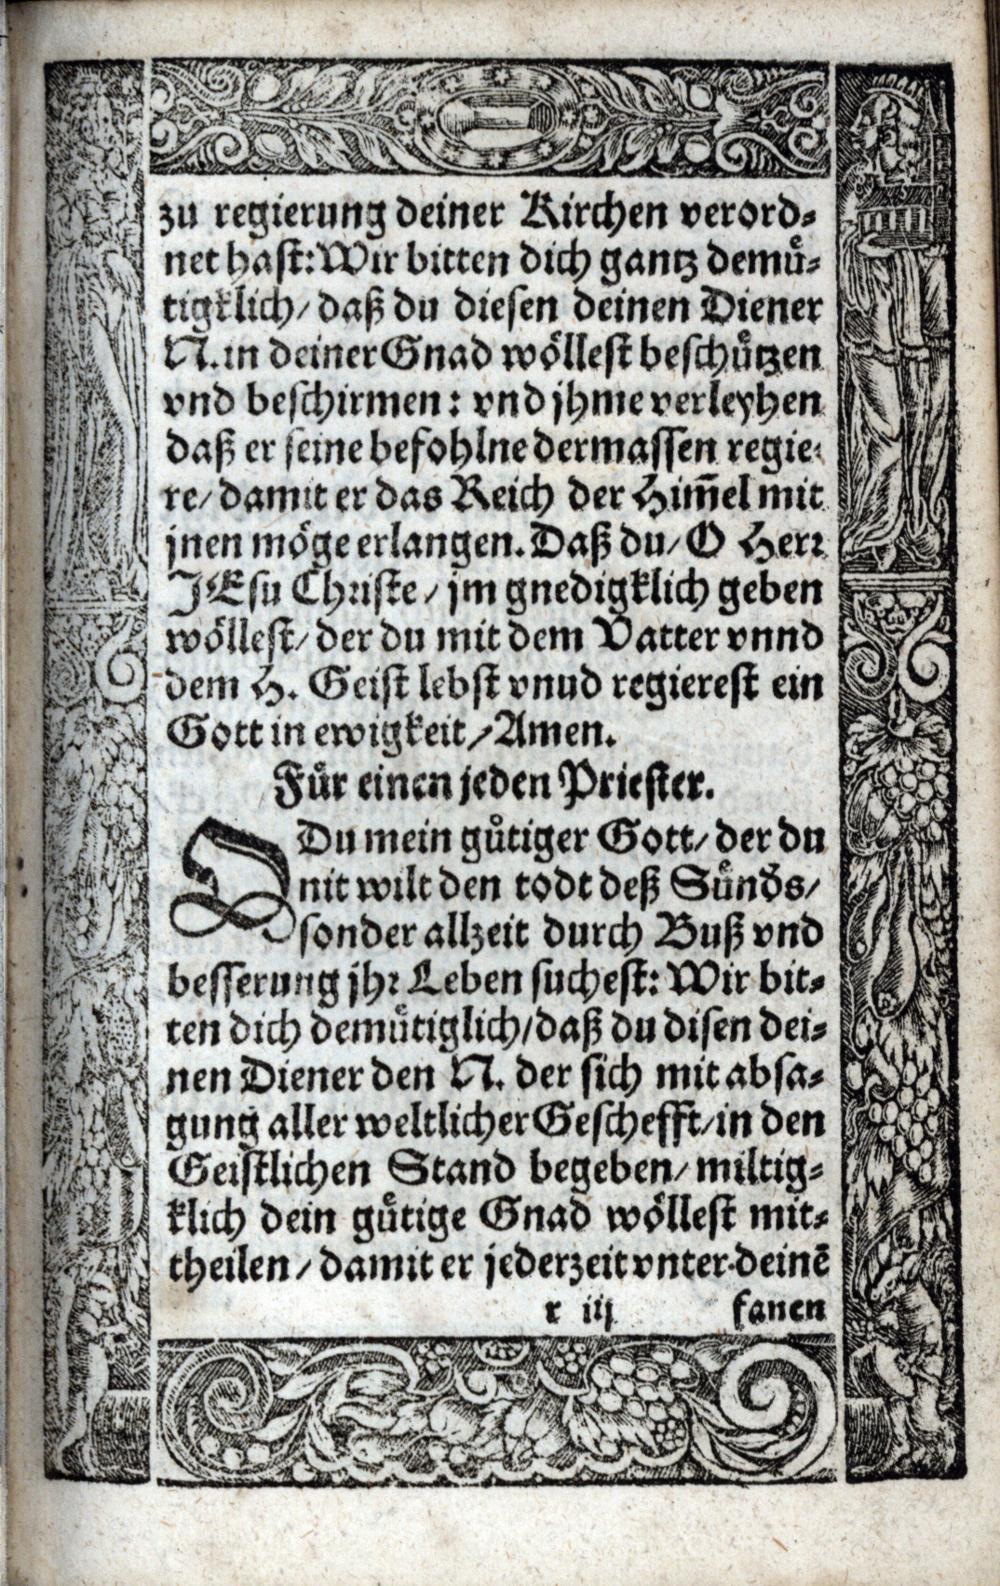 zu regierung deiner Kirchen verord⸗
net hast: Wir bitten dich gantz demuͤ⸗
tigklich/ daß du diesen deinen Diener
N. in deiner Gnad woͤllest beschuͤtzen
vnd beschirmen: vnd jhme verleyhen
daß er seine befohlne dermassen regie⸗
re/ damit er das Reich der Him̄el mit
jnen moͤge erlangen. Daß du/ O Herr
JEsu Christe/ jm gnedigklich geben
woͤllest/ der du mit dem Vatter vnnd
dem H. Geist lebst vnud regierest ein
Gott in ewigkeit/ Amen.
Fuͤr einen jeden Priester.
O Du mein guͤtiger Gott/ der du
nit wilt den todt deß Suͤnd̕s/
sonder allzeit durch Buß vnd
besserung jhr Leben suchest: Wir bit⸗
ten dich demuͤtiglich/ daß du disen dei⸗
nen Diener den N. der sich mit absa⸗
gung aller weltlicher Geschefft/ in den
Geistlichen Stand begeben/ miltig⸗
klich dein guͤtige Gnad woͤllest mit⸗
theilen/ damit er jederzeit vnter deinē
x iij fanen